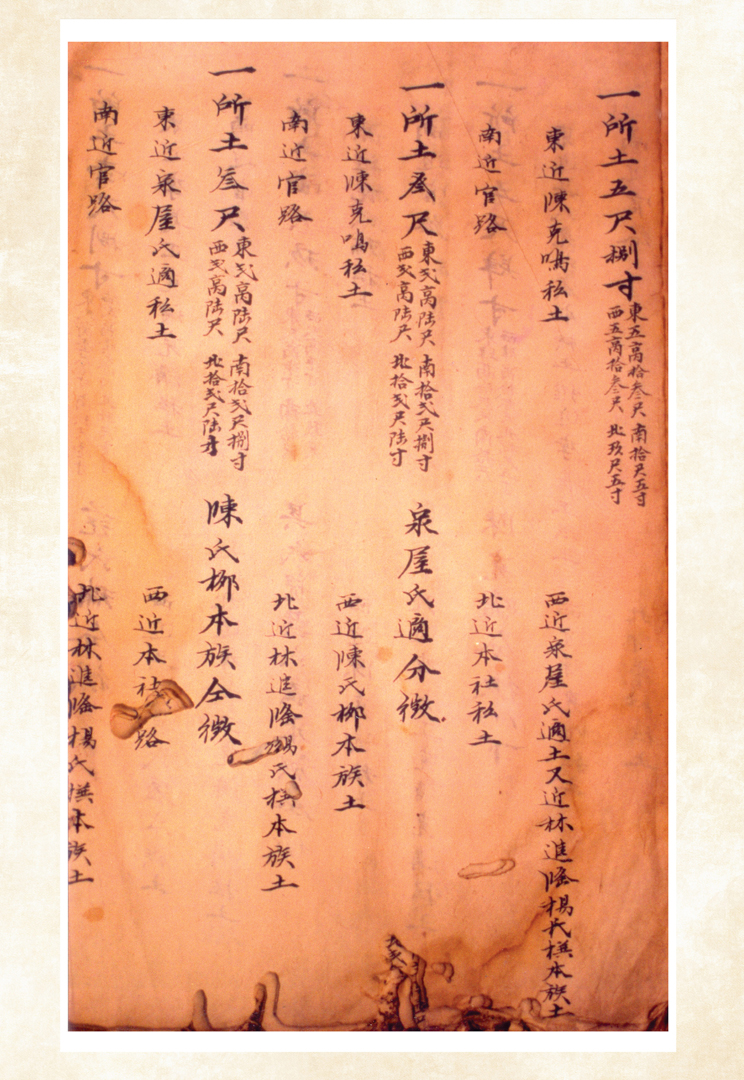 一所土五尺捌寸
東五高拾叁尺 南拾尺五寸
西五高拾叁尺 北玖尺五寸
東近陳克鳴私土 西近泉屋氏適土又近林進隆楊氏本族土
南近官路 北近本社私土
一所土叁尺
東弍高陆尺 南拾弍尺捌寸
西弍高陆尺 北拾弍尺陆寸
泉屋氏適分徴
東近陳克鳴私土 西近陳氏柳本族土
南近官路 北近林進隆楊氏本族土
一所土叁尺
東弍高陆尺 南拾弍尺捌寸
西弍高陆尺 北拾弍尺陆寸
陳氏柳本族仝徴
東近泉屋氏適私土 西近本社路
南近官路 北近林進隆楊氏本族土